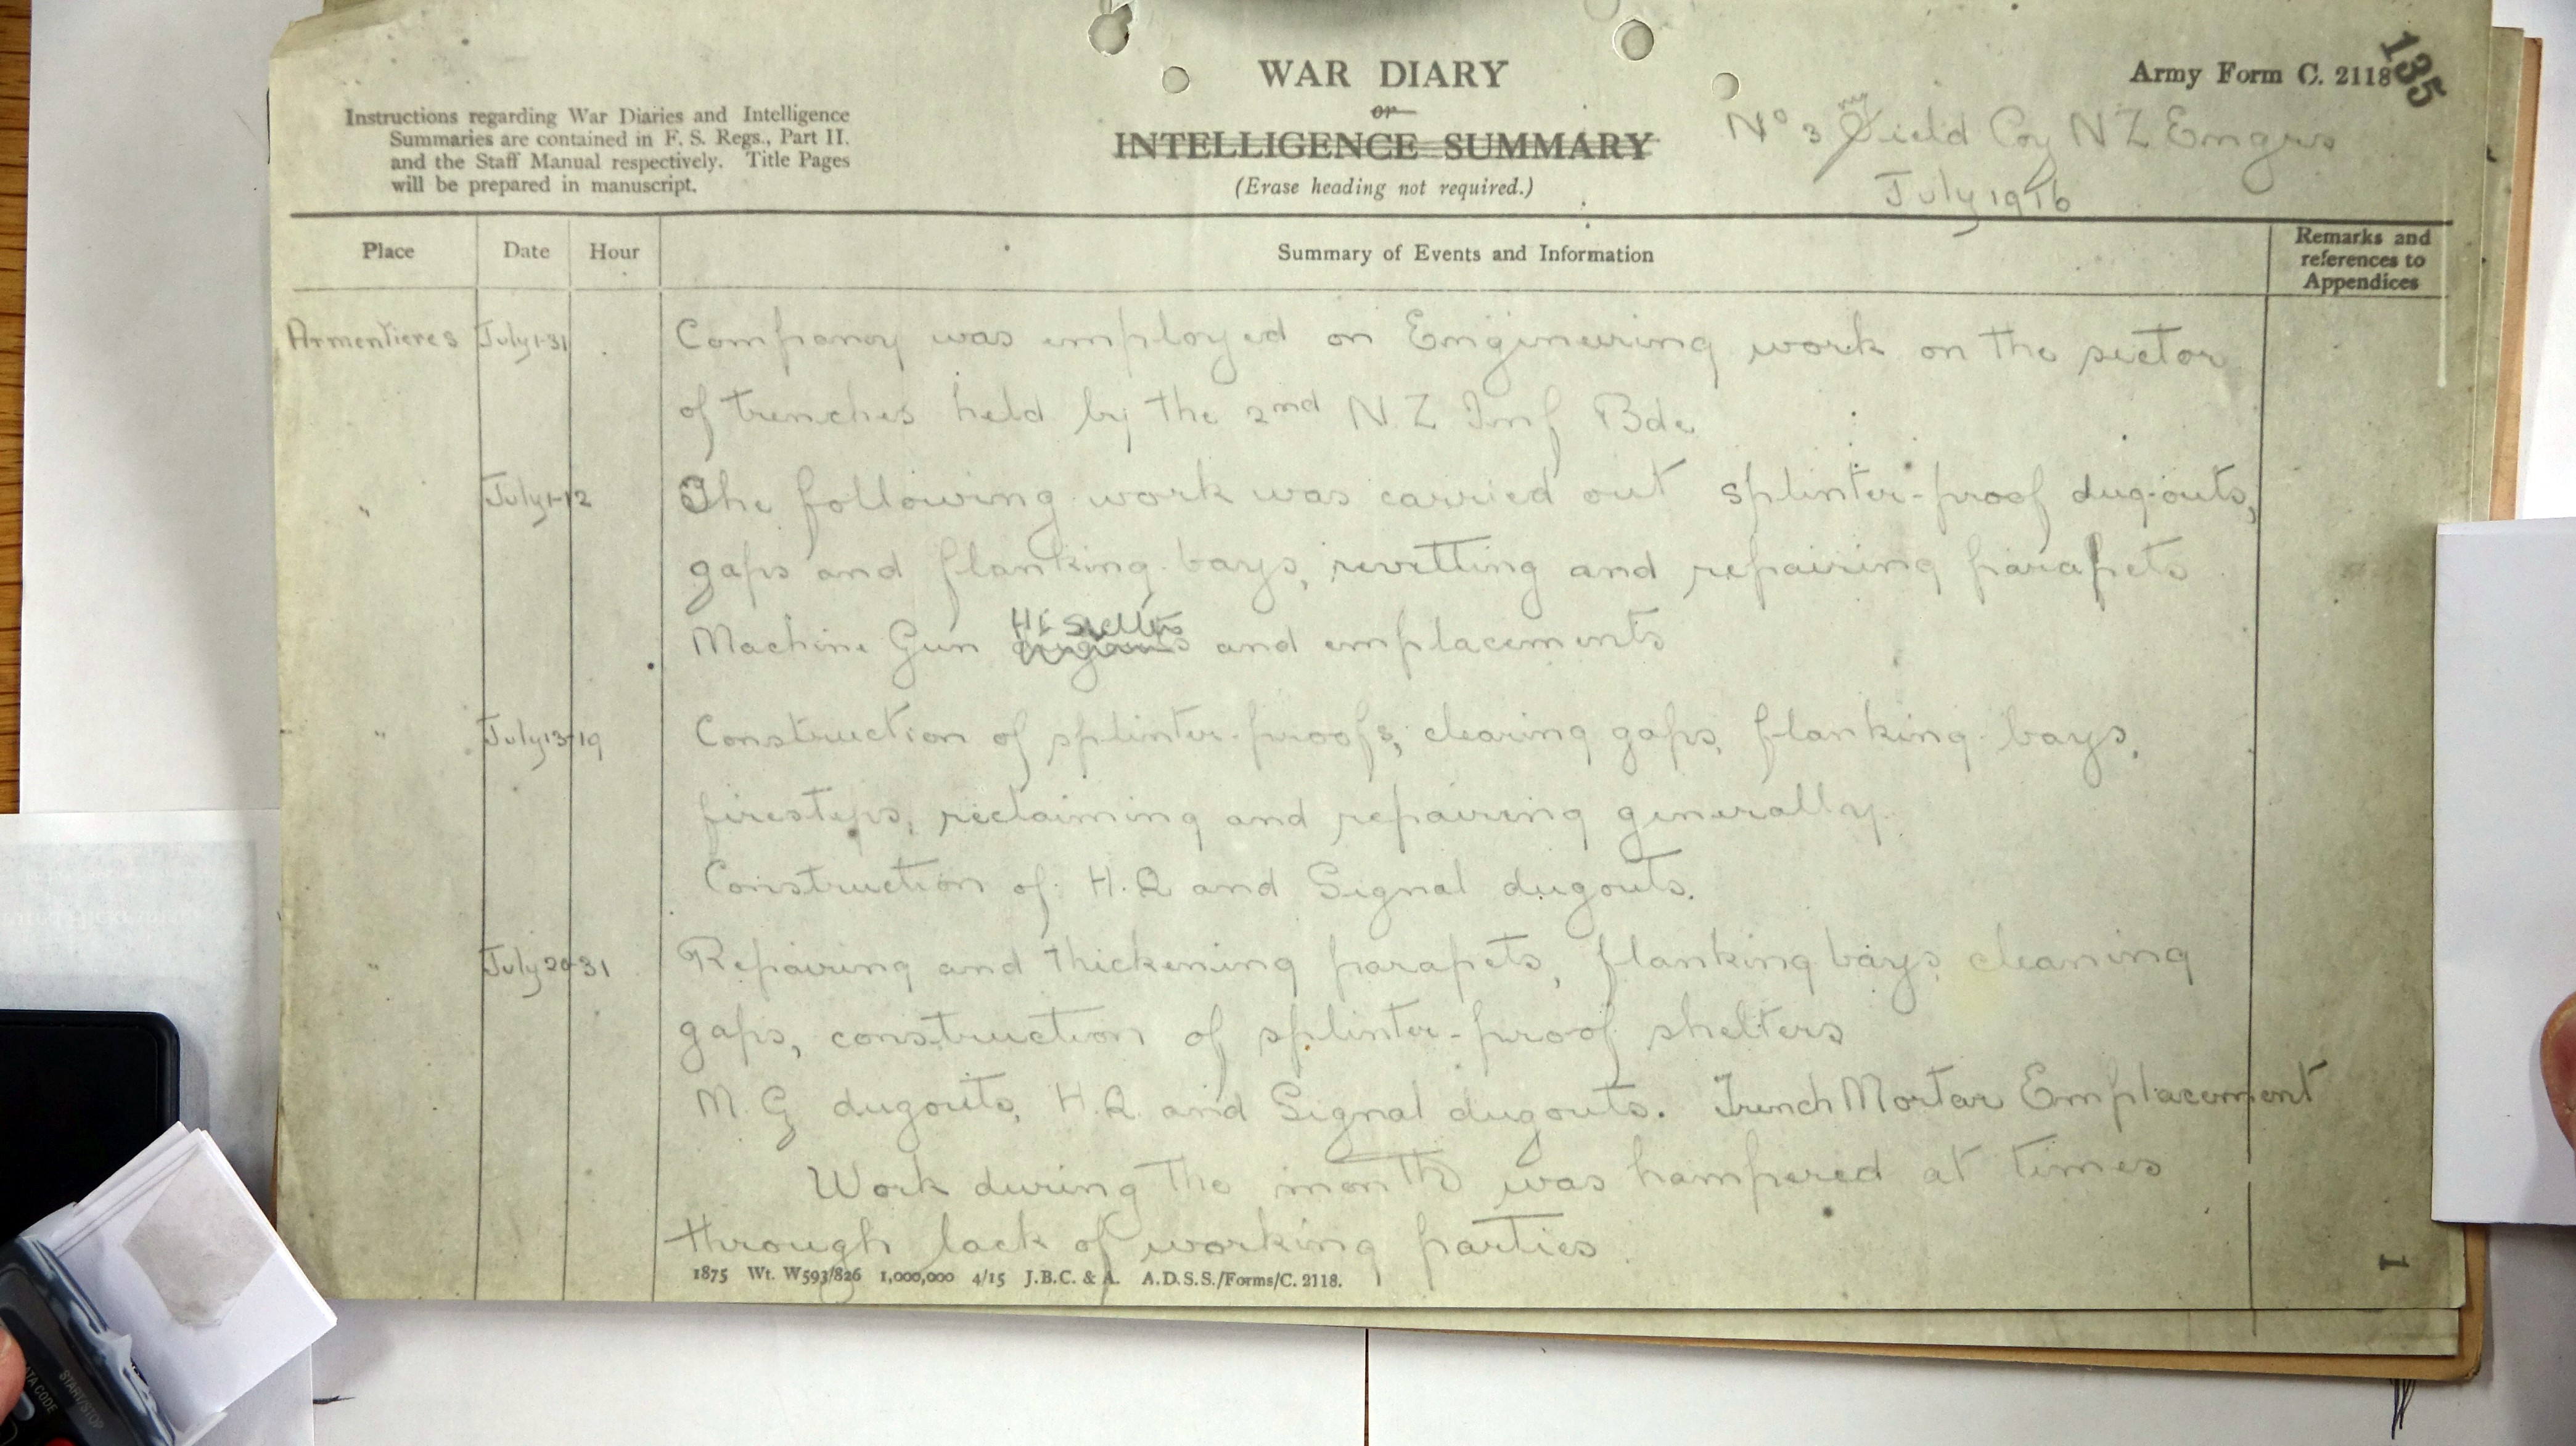 135
WAR DIARY
or
INTELLIGENCE SUMMARY
(Erase heading not required.)
Army Form C. 2118
Instructions regarding War Diaries and Intelligence
Summaries are contained in F. S. Regs., Part II.
and the Staff Manual respectively. Title Pages
will be prepared in manuscript.
No 3 Field Coy NZ Engrs
July 1916
Place Date Hour Summary of Events and Information Remarks and references to Appendices
Armentieres July 1-31 Company was employed on Engineering work on the sector
of trenches held by the 2nd N.Z Inf Bde
" July 1-12 The following work was carried out splinter-proof dug-outs,
gaps and flanking bays, revetting and repairing parapets
Machine Gun and emplacements
" July 13-19 Construction of splinter-proofs, clearing gaps, flanking bays,
firesteps, reclaiming and repairing generally.
Construction of H.Q and Signal dugouts.
" July 20-31 Repairing and thickening parapets, flanking bays, cleaning
gaps, construction of splinter-proof shelters
M.G dugouts, H.Q. and Signal dugouts. Trench Mortar Emplacement
Work during the month was hampered at times
through lack of working parties
1875 Wt. W593/826 1,000,000 4/15 J.B.C. & A. A.D.S.S./Forms/C. 2118.
1
START/STOP
DATA CODE